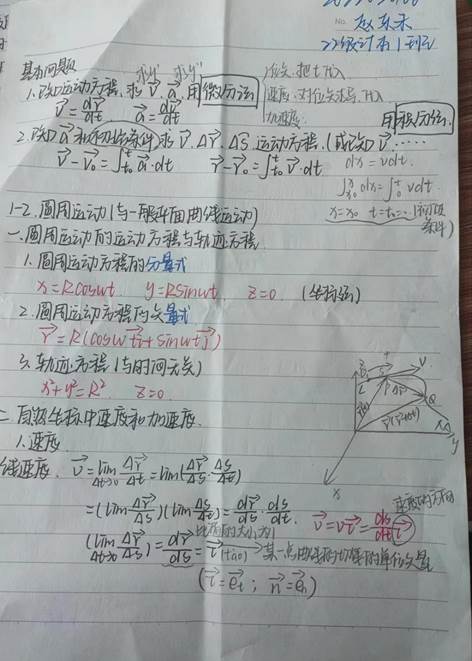 No. 赵东禾
22级计本1班
基本问题 求v' 求v''
1.已知运动方程,求v⃗.a⃗,用微分法
v⃗=dr⃗/dt a⃗=dv⃗/dt
位矢:把t代入
速度:对位矢求导,代入
加速度:
用积分法
2.已知a⃗(和初始条件)求v⃗.Δr⃗.Δs⃗.运动方程.(或已知v⃗……
v⃗-v⃗₀=∫ₜ₀ᵗa⃗·dt r⃗-r⃗₀=∫ₜ₀ᵗv⃗·dt dx=vdt.
∫ₓ₀ˣdx=∫ₜ₀ᵗvdt
x=x₀ t=t₀=…(初始
条件)
1-2.圆周运动(与一般平面曲线运动)
一.圆周运动的运动方程与轨迹方程
1.圆周运动方程的分量式
x=Rcosωt. y=Rsinωt z=0. (坐标法)
2.圆周运动方程的矢量式
r⃗=R(cosωti⃗+sinωtj⃗)
3.轨迹方程(与时间无关)
x²+y²=R² z=0.
二.自然坐标中速度和加速度.
1.速度
线速度. v⃗=lim Δt→0 Δr⃗/Δt=lim(Δr⃗/Δs·Δs/Δt)
=(lim Δr⃗/Δs)(lim Δs/Δt)=dr⃗/ds·ds/dt. v⃗=vτ⃗=ds/dt τ⃗
速度的方向
(lim Δt→0 Δr⃗/Δs)=dr⃗/ds=τ⃗(tao)→某一点曲线的切线的单位矢量
(τ⃗=e⃗ₜ; n⃗=e⃗ₙ)
z
v
Q
x
y